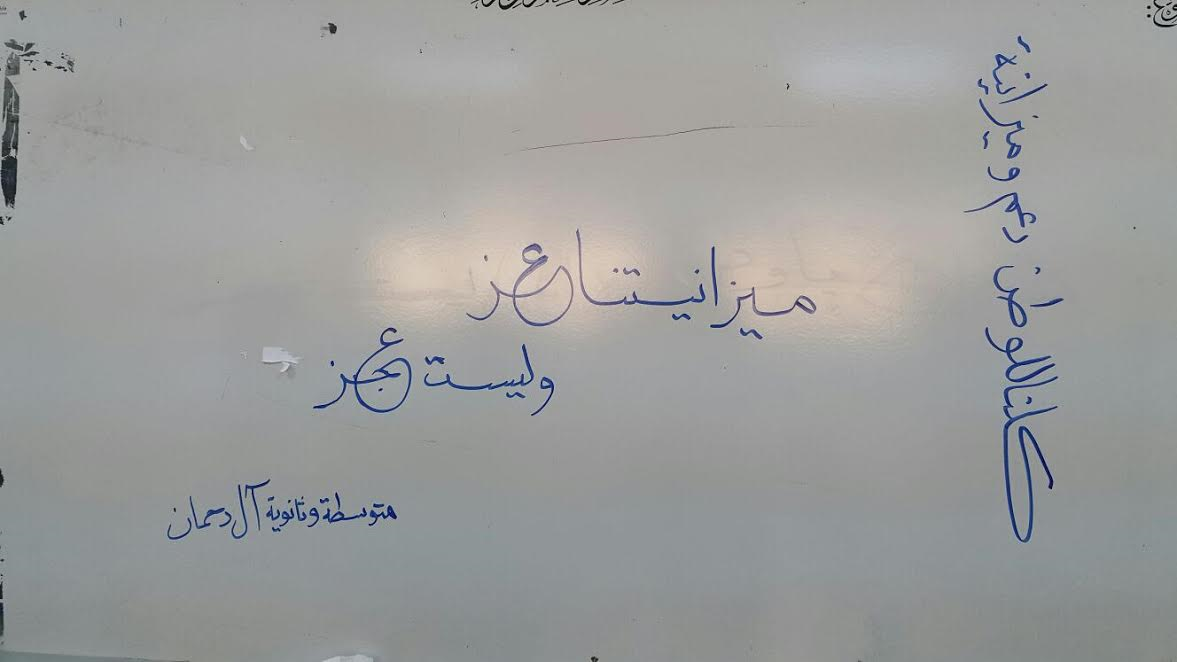 كلنا للوطن دعم وميزانية
ميزانيتنا عز
وليست عجز
متوسطة وثانوية آل دحمان